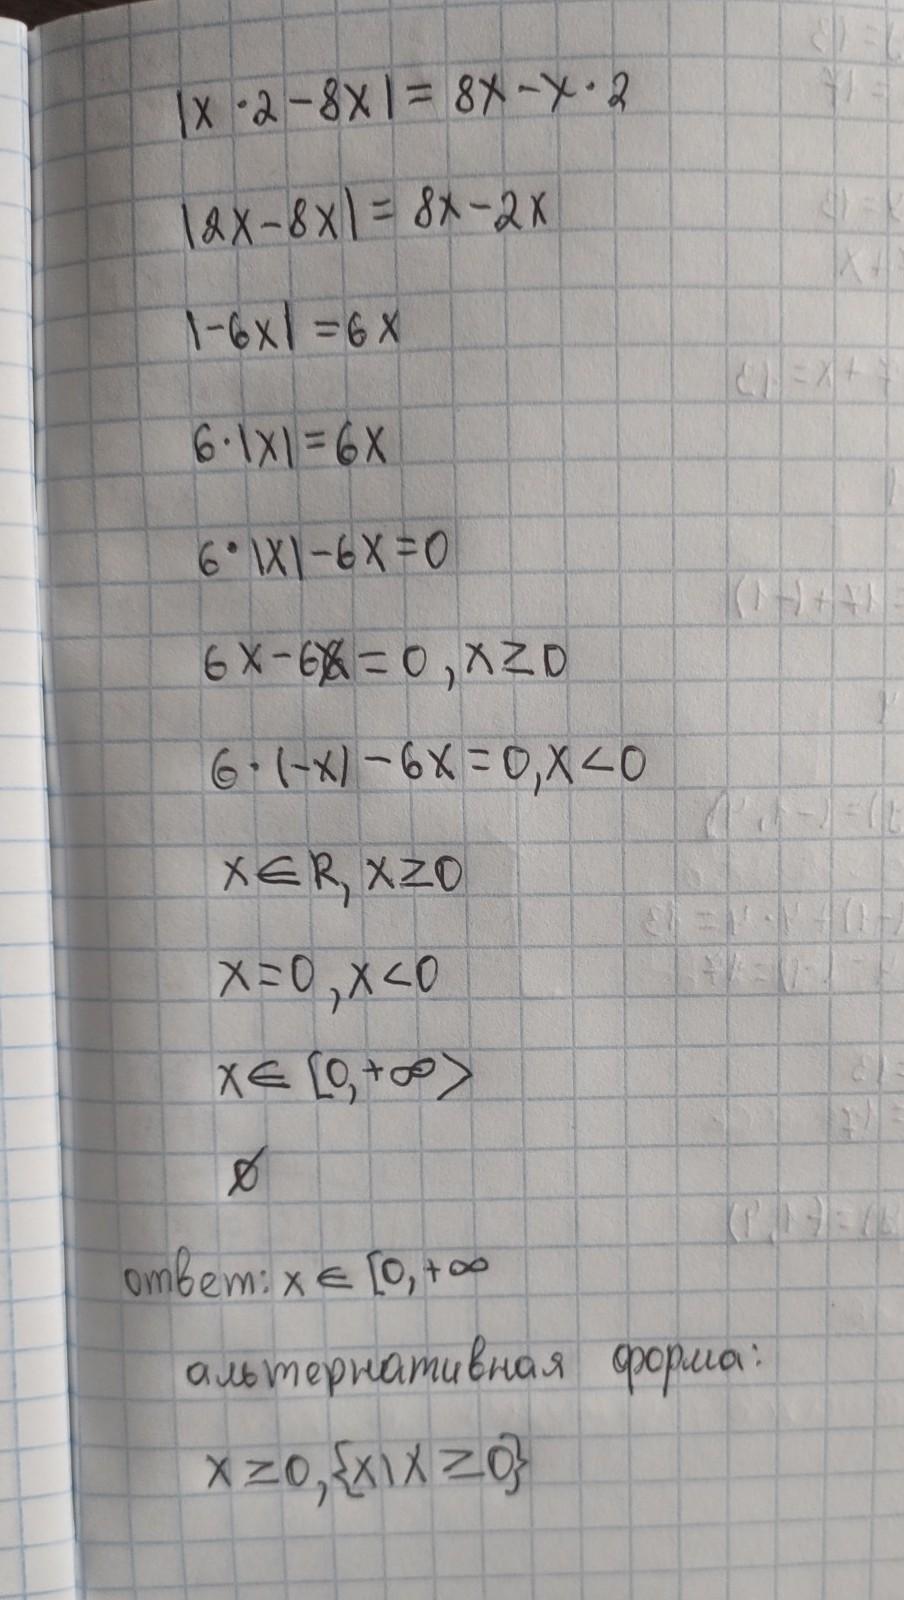 |x · 2 - 8x| = 8x - x · 2
|2x - 8x| = 8x - 2x
|-6x| = 6x
6 · |x| = 6x
6 · |x| - 6x = 0
6x - 6x = 0, x ≥ 0
6 · (-x) - 6x = 0, x < 0
x ∈ R, x ≥ 0
x = 0, x < 0
x ∈ [0, +∞>
∅
ответ: x ∈ [0, +∞
альтернативная форма:
x ≥ 0, {x\x ≥ 0}